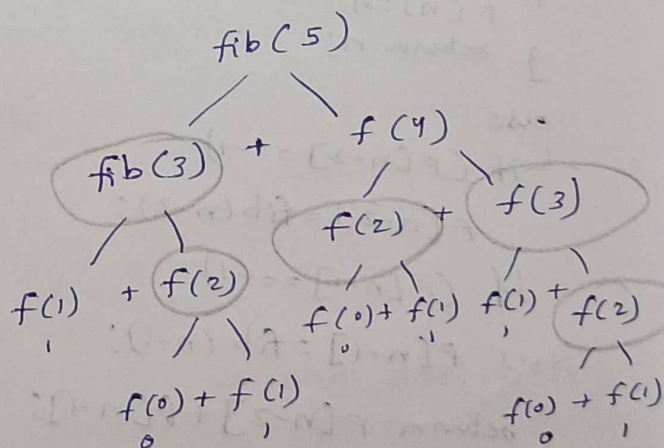 fib(5)
fib(3) + f(4)
f(2) + f(3)
f(1) + f(2)
1
f(0) + f(1)
0 1
f(1) + f(2)
1
f(0) + f(1)
0 1
f(0) + f(1)
0 1